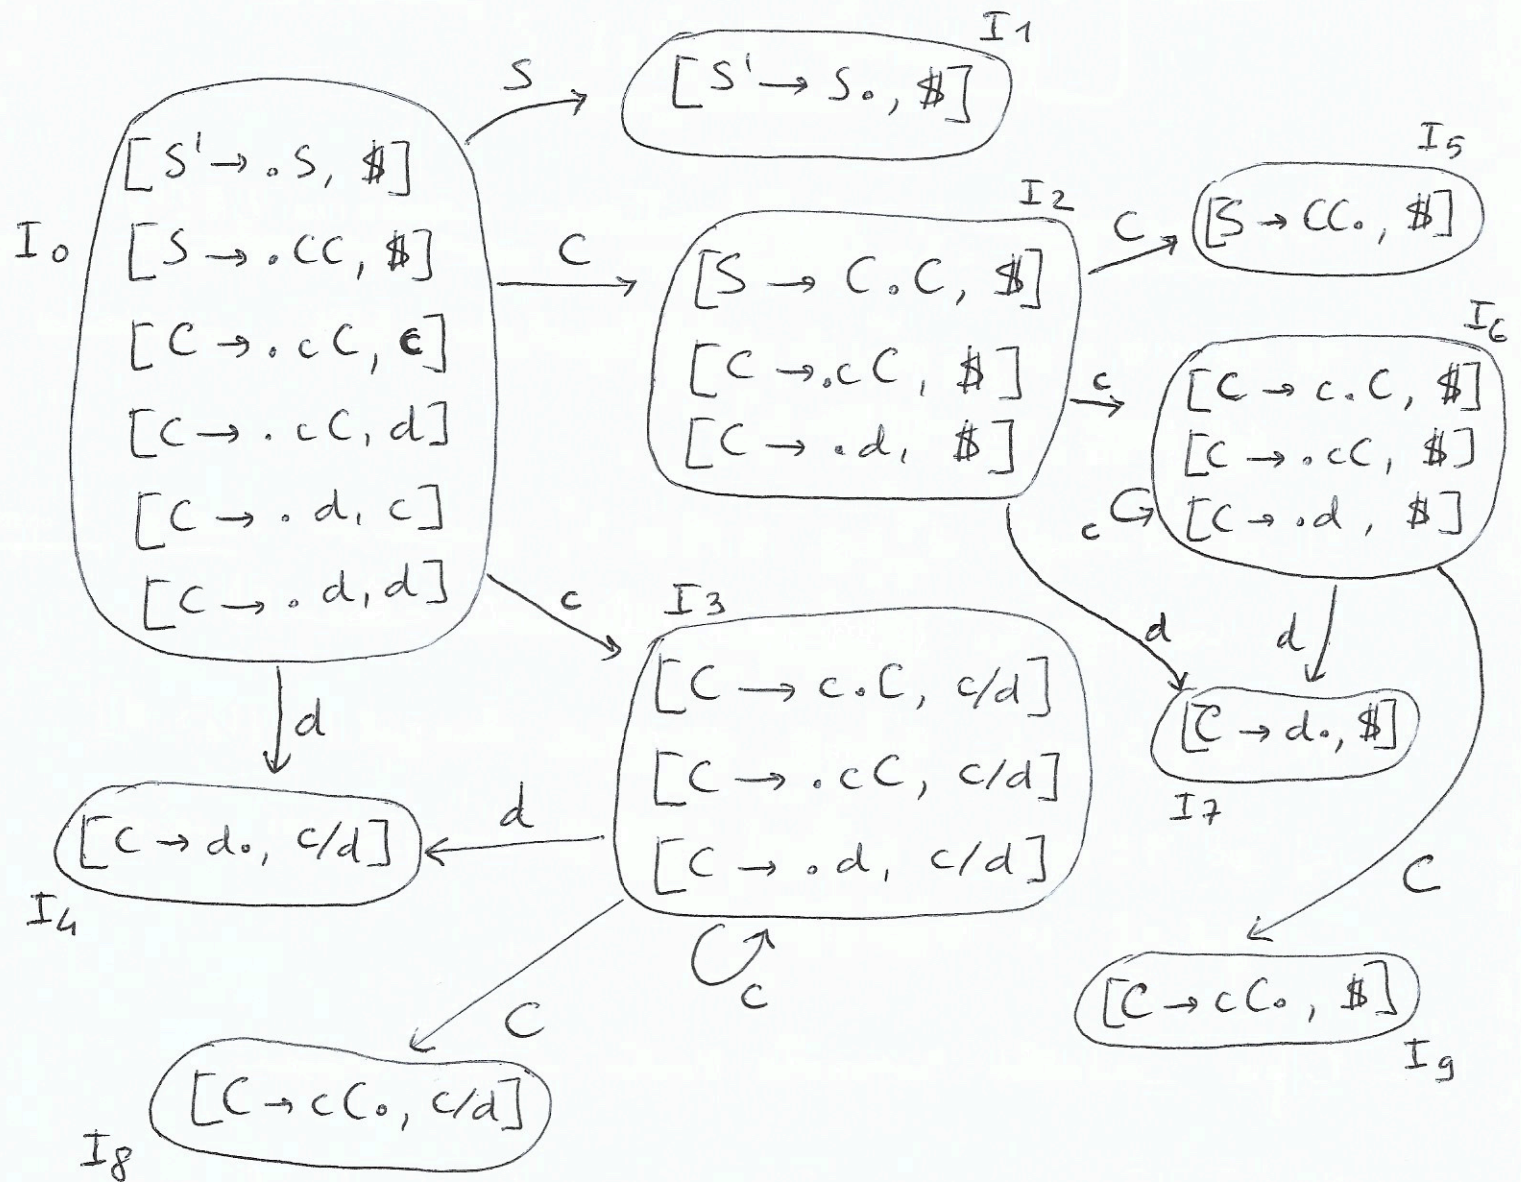 I0
[S' → .S, $]
[S → .CC, $]
[C → .cC, c]
[C → .cC, d]
[C → .d, c]
[C → .d, d]
S
I1
[S' → S., $]
C
I2
[S → C.C, $]
[C → .cC, $]
[C → .d, $]
C
I5
[S → CC., $]
c
I6
[C → c.C, $]
[C → .cC, $]
[C → .d, $]
c
d
d
[C → d., $]
I7
C
[C → cC., $]
I9
c
I3
[C → c.C, c/d]
[C → .cC, c/d]
[C → .d, c/d]
c
d
d
[C → d., c/d]
I4
C
[C → cC., c/d]
I8